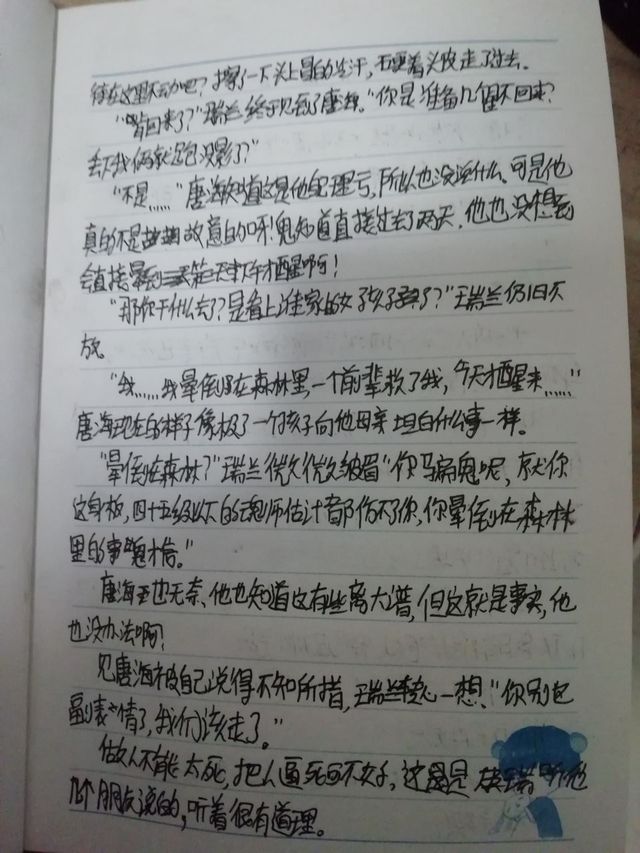 待在这里不动吧？擦了一下头上冒的冷汗，王硬着头皮走了过去。
"肯回来了？"瑞兰终于见到了唐海。"你是准备几个留不回来？
丢下我俩就跑没影了？"
"不是……"唐海知道这是他理亏，所以也没说什么。可是他
真的不是故意的呀！鬼知道直接过去了两天，他也没想到
会直接晕到第三天下午才醒啊！
"那你干什么去了？是看上谁家的女孩子了？"王瑞兰仍旧不
放。
"我……我晕倒在森林里，一个前辈救了我，今天才醒来……"
唐海现在的样子像极了一个孩子向他母亲坦白什么事一样。
"晕倒在森林？"瑞兰微微皱眉"你骗鬼呢，就你
这身板，四十五级以下的魂师估计都伤不了你，你晕倒在森林
里的事鬼才信。"
唐海也无奈、他也知道这有些离大谱，但这就是事实，他
也没办法啊！
见唐海被自己说得不知所措，王瑞兰转念一想、"你别包
表情了，我们该走了。"
做人不能太死，把人逼死可不好，这是听他
几个朋友说的，听着很有道理。